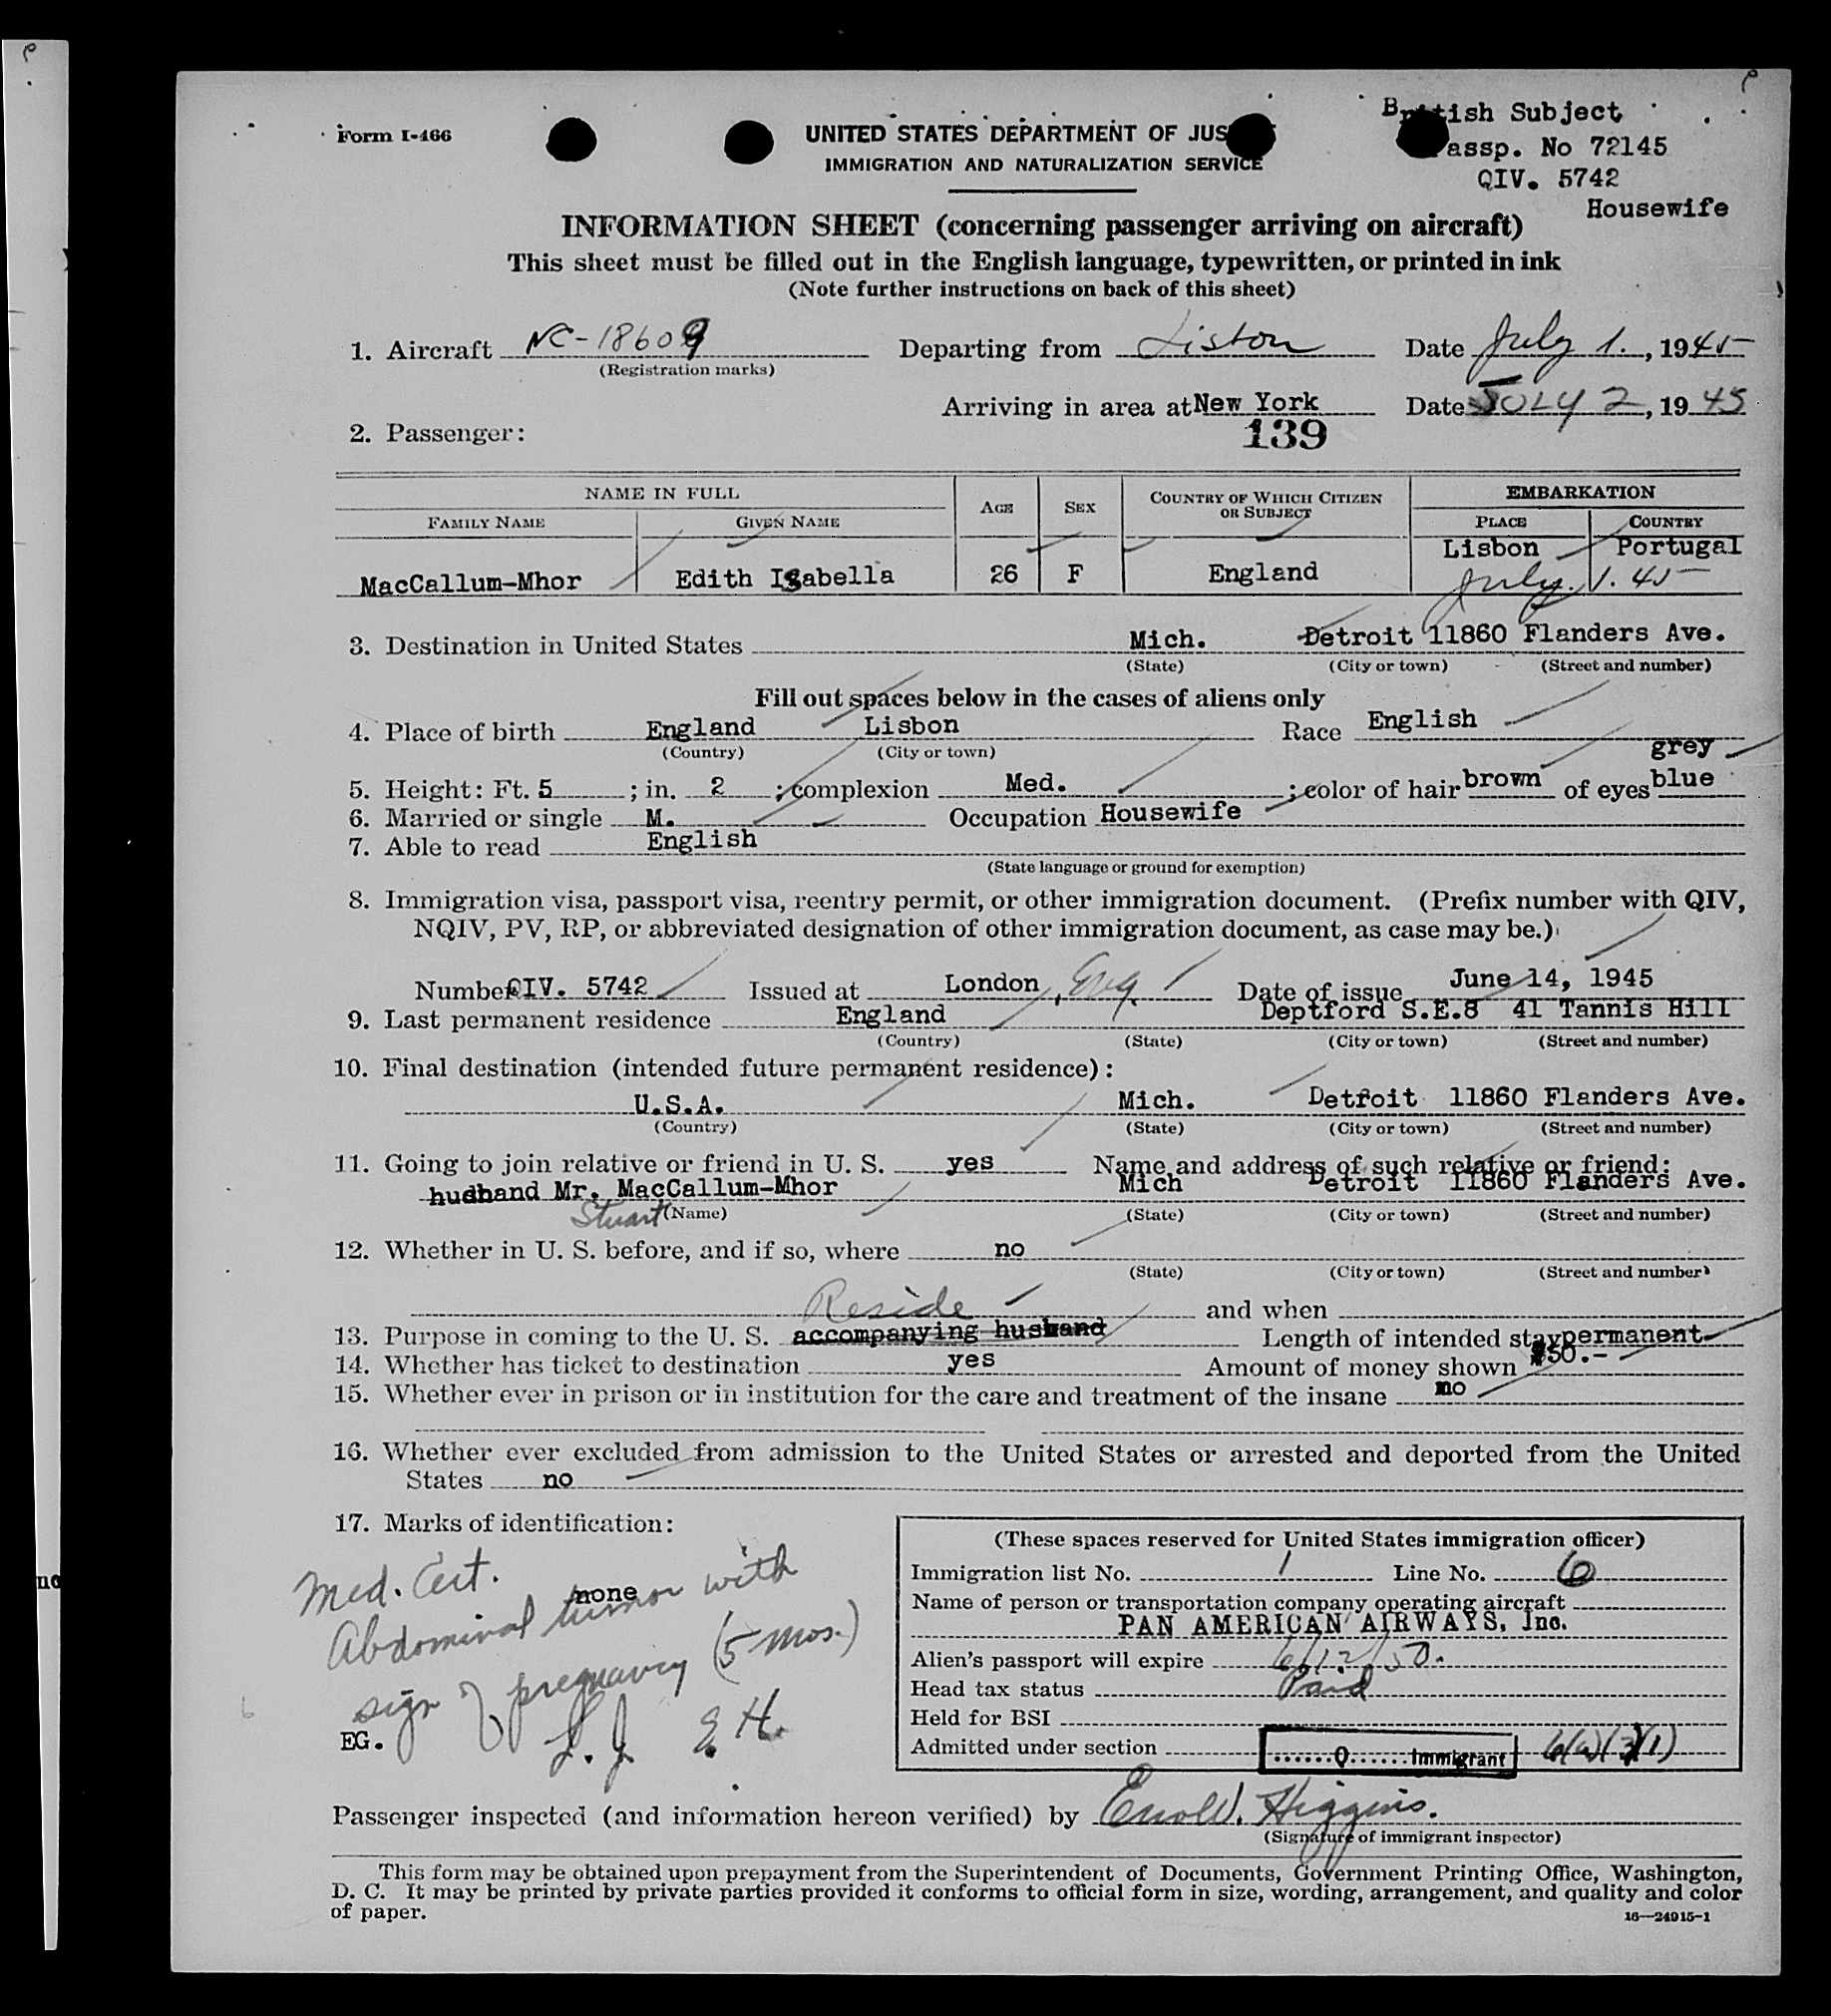 British Subject
Form I-466
UNITED STATES DEPARTMENT OF JUS
assp. No 72145
IMMIGRATION AND NATURALIZATION SERVICE
QIV. 5742
Housewife
INFORMATION SHEET (concerning passenger arriving on aircraft)
This sheet must be filled out in the English language, typewritten, or printed in ink
(Note further instructions on back of this sheet)
1. Aircraft NC-18609 Departing from Lisbon Date July 1., 1945
(Registration marks)
Arriving in area at New York Date JULY 2, 1945
2. Passenger: 139
NAME IN FULL AGE SEX COUNTRY OF WHICH CITIZEN OR SUBJECT EMBARKATION
FAMILY NAME GIVEN NAME PLACE COUNTRY
Lisbon Portugal
MacCallum-Mhor Edith Isabella 26 F England July. 1. 45
3. Destination in United States Mich. Detroit 11860 Flanders Ave.
(State) (City or town) (Street and number)
Fill out spaces below in the cases of aliens only
4. Place of birth England Lisbon Race English
(Country) (City or town)
grey
5. Height: Ft. 5 ; in. 2 ; complexion Med. ; color of hair brown of eyes blue
6. Married or single M. Occupation Housewife
7. Able to read English
(State language or ground for exemption)
8. Immigration visa, passport visa, reentry permit, or other immigration document. (Prefix number with QIV,
NQIV, PV, RP, or abbreviated designation of other immigration document, as case may be.)
Number QIV. 5742 Issued at London, Eng. Date of issue June 14, 1945
9. Last permanent residence England Deptford S.E.8 41 Tannis Hill
(Country) (State) (City or town) (Street and number)
10. Final destination (intended future permanent residence):
U.S.A. Mich. Detroit 11860 Flanders Ave.
(Country) (State) (City or town) (Street and number)
11. Going to join relative or friend in U. S. yes Name and address of such relative or friend:
husband Mr. MacCallum-Mhor Mich Detroit 11860 Flanders Ave.
Stuart (Name) (State) (City or town) (Street and number)
12. Whether in U. S. before, and if so, where no
(State) (City or town) (Street and number)
Reside and when
13. Purpose in coming to the U. S. accompanying husband Length of intended stay permanent
14. Whether has ticket to destination yes Amount of money shown $50.-
15. Whether ever in prison or in institution for the care and treatment of the insane no
16. Whether ever excluded from admission to the United States or arrested and deported from the United
States no
17. Marks of identification:
none
Med. Cert.
Abdominal tumor with
sign of pregnancy (5 mos.)
L. J. E. H.
EG.
(These spaces reserved for United States immigration officer)
Immigration list No. 1 Line No. 6
Name of person or transportation company operating aircraft
PAN AMERICAN AIRWAYS, Inc.
Alien's passport will expire 6/12/50.
Head tax status Paid
Held for BSI
Admitted under section ......Q......Immigrant 6(a)(3)(1)
Passenger inspected (and information hereon verified) by Higgins.
(Signature of immigrant inspector)
This form may be obtained upon prepayment from the Superintendent of Documents, Government Printing Office, Washington,
D. C. It may be printed by private parties provided it conforms to official form in size, wording, arrangement, and quality and color
of paper.
16—24915-1
no